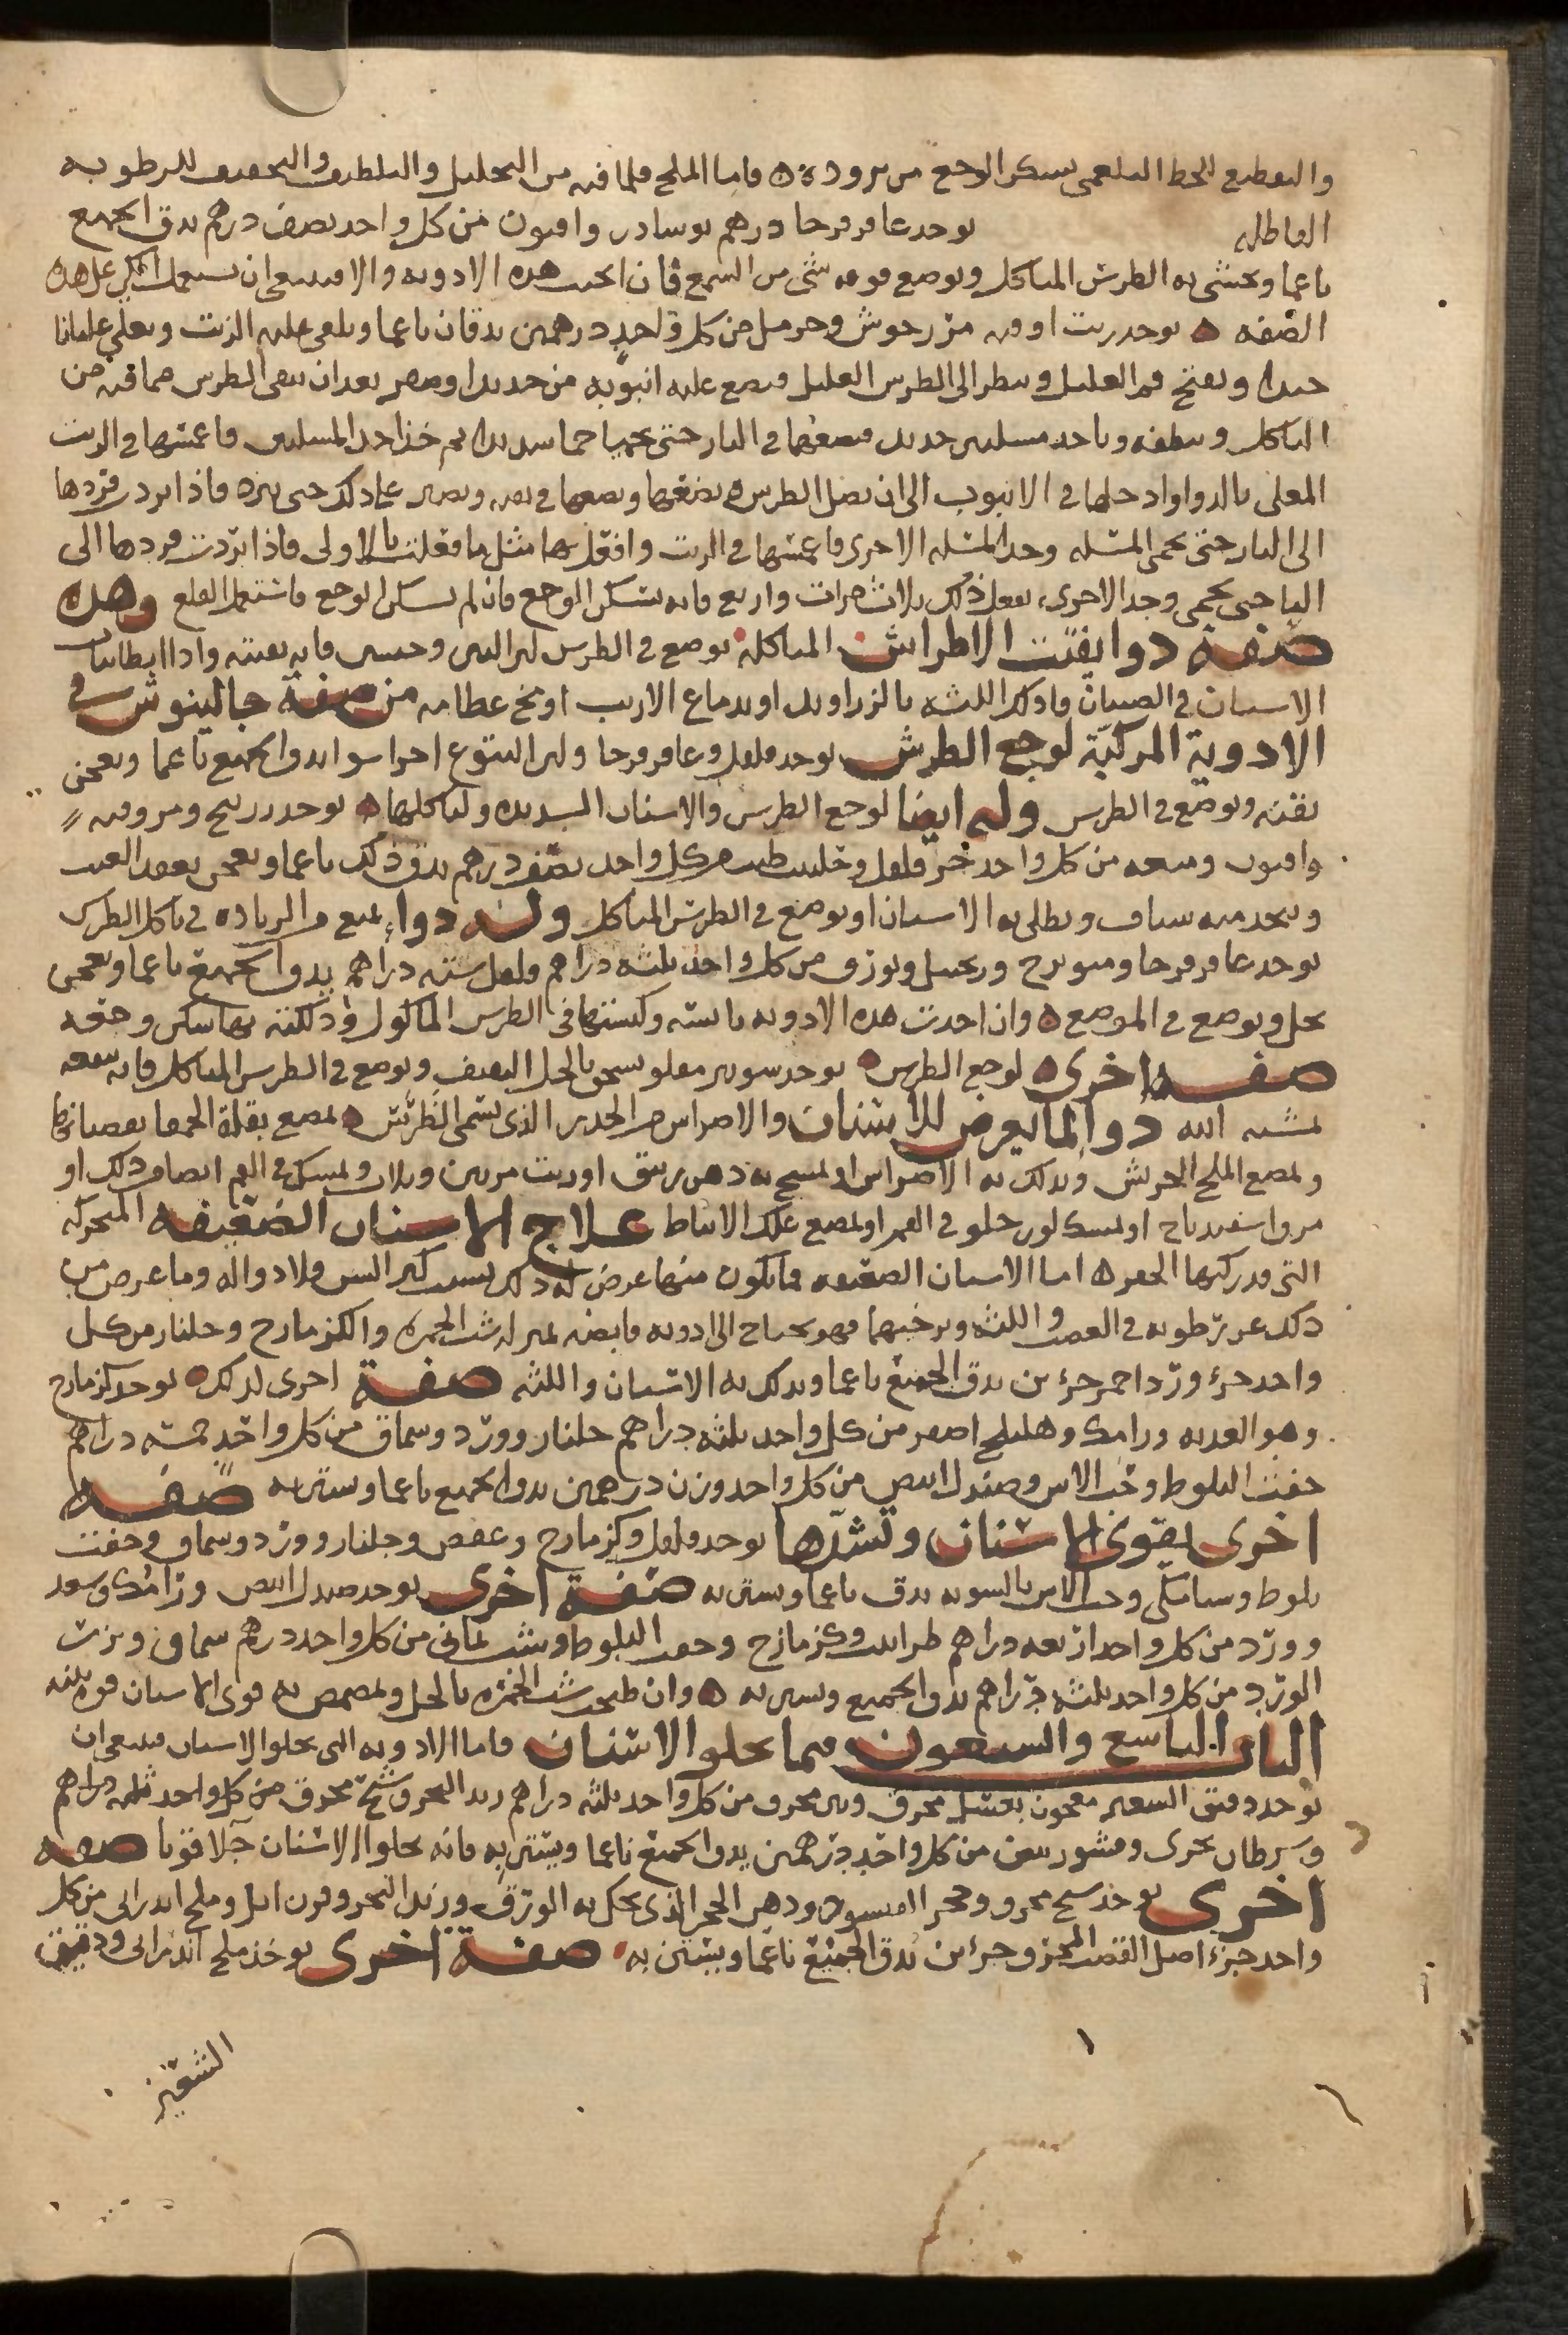 والتقطيع للخلط البلغمي يسكن الوجع من برودة ه فاما الملح فلما فيه من التحليل والتلطيف والتجفيف للرطوبه
الفاعله يوخد عاقرقرحا درهم نوسادر وافيون من كل واحد نصف درهم يدق الجميع
ناعما ويحشى به الطرس المتاكل ويوضع فوقه شى من الشمع فان انجبت هده الادويه والا فينبغى ان يستعمل الكي على هده
الصفه ه يوخد زيت اوقيه مرزنجوش وحرمل من كل واحد درهمين يدقان ناعما ويلقى عليه الزيت ويغلى غليانا
جيدا ويفتح فم العليل وينظر الى الطرس العليل فيضع عليه انبوبه من حديد او صفر بعد ان ينقى الطرس مما فيه من
التاكل وينظفه وياخد مسلتين حديد فيضعهما في النار حتى يحميا حما شديدا ثم خذ احد المسلتين فاغمسها في الزيت
المغلى بالدوا وادخلها في الانبوب الى ان تصل الطرس وتضعها في نفسه ويصبر على دلك حتى يبرد فاذا برد فردها
الى النار حتى تحمى المسله وخد المسله الاخرى فاغمسها في الزيت وافعل بها مثل ما فعلت بالاولى فاذا بردت فردها الى
النار حتى تحمى وخد الاخرى، تفعل ذلك ثلاث مرات واربع فانه يسكن الوجع فان لم يسكن الوجع فاستعمل القلع وهده
صفة دوا يفتت الاطراس المتاكله يوضع في الطرس لبن التين وحبسى فانه يفتته واذا ابطا نبات
الاسنان في الصبيان فادلك اللثه بالزبد او بدماغ الارنب او بمخ عظامه من صفة جالينوس في
الادوية المركبة لوجع الطرس يوخد فلفل وعاقرقرحا ولبن اليتوع اجزا سوا يدق الجميع ناعما ويعجن
بقنه ويوضع في الطرس وله ايضا لوجع الطرس والاسنان الشديده ولتاكلها ه يوخد زرنيخ ومر وقنه
وافيون وميعه من كل واحد جزو فلفل وحلتيت طيب من كل واحد نصف درهم يدق ذلك ناعما ويعجن بعقيد العنب
ويتخد منه شياف ويطلى به الاسنان او يوضع في الطرس المتاكل وله دواء يمنع من الزياده في تاكل الطرس
يوخد عاقرقرحا وميويزج وزنجبيل وبورق من كل واحد ثلثه دراهم وفلفل سته دراهم يدق الجميع ناعما ويعجن
بخل ويوضع في الموضع ه وان اخدت هده الادويه يابسه وكبستها في الطرس الماكول ودلكته بها سكن وجعه
صفه اخرى لوجع الطرس ه يوخد شونيز مقلو يسحق بالخل الثقيف ويوضع في الطرس المتاكل فانه ينفعه
بمشية الله دوا لما يعرض للاسنان والاضراس من الخدر الذى يسمى الطرس ه يمضغ بقلة الحمقا بقضبانها
ويمضغ الملح الجريش ويدلك به الاضراس او يمسح به دهن زنبق او زيت مرتين وثلاث ويمسك في الفم ايضا من دلك او
مرق اسفيدباج او يمسك لوز حلو في الفم او يمضغ علك الانباط علاج الاسنان الضعيفه المتحركه
التى قد ركبها الحفر ه اما الاسنان الضعيفه فما يكون منها عرض له ذلك بسبب كبر السن فلا دوا له وما عرض من
ذلك عن رطوبه في العصب واللثه ويرخيهما فهو يحتاج الى ادويه قابضه بمنزله شب الحمره والكزمازج وجلنار من كل
واحد جزء وورد احمر جزءين يدق الجميع ناعما ويدلك به الاسنان واللثه صفة اخرى لدلك ه يوخد كزمازج
وهو العدبه ورامك وهليلج اصفر من كل واحد ثلثه دراهم جلنار وورد وسماق من كل واحد خمسه دراهم
جفت البلوط وحب الاس وصندل ابيض من كل واحد وزن درهمين يدق الجميع ناعما ويستن به صفه
اخرى يقوى الاسنان ويشدها يوخد فلفل وكزمازج وعفص وجلنار وورد وسماق وجفت
بلوط وسنا مكى وحب الاس بالسويه يدق ناعما ويستن به صفة اخرى يوخد صندل ابيض ورامك وسعد
وورد من كل واحد اربعه دراهم طراثيث وكزمازج وجفت البلوط وشب يمانى من كل واحد درهم سماق وبزر
الورد من كل واحد ثلثه دراهم يدق الجميع ويستن به ه وان طبخت شب الحمره بالخل ويمضمض به قوى الاسنان قوه بليغه
الباب التاسع والسبعون فيما يجلو الاسنان فاما الادويه التى تجلوا الاسنان فينبغى ان
يوخد دقيق الشعير معجون بعسل محرق وبنى محرق من كل واحد ثلثه دراهم زبد البحر وشيح محرق من كل واحد ثلثه دراهم
وسرطان بحرى وقشور بيض من كل واحد درهمين يدق الجميع ناعما ويستن به فانه يجلوا الاسنان جلا قويا صفه
اخرى يوخذ شيح محرق وحجر الفيسور ودهن الحجر الذى يحك به الورق وزبد البحر وقرن ايل وملح اندرانى من كل
واحد جزء اصل القصب المحرق جزءين يدق الجميع ناعما ويستن به صفة اخرى يوخذ ملح اندرانى ودقيق
الشعير